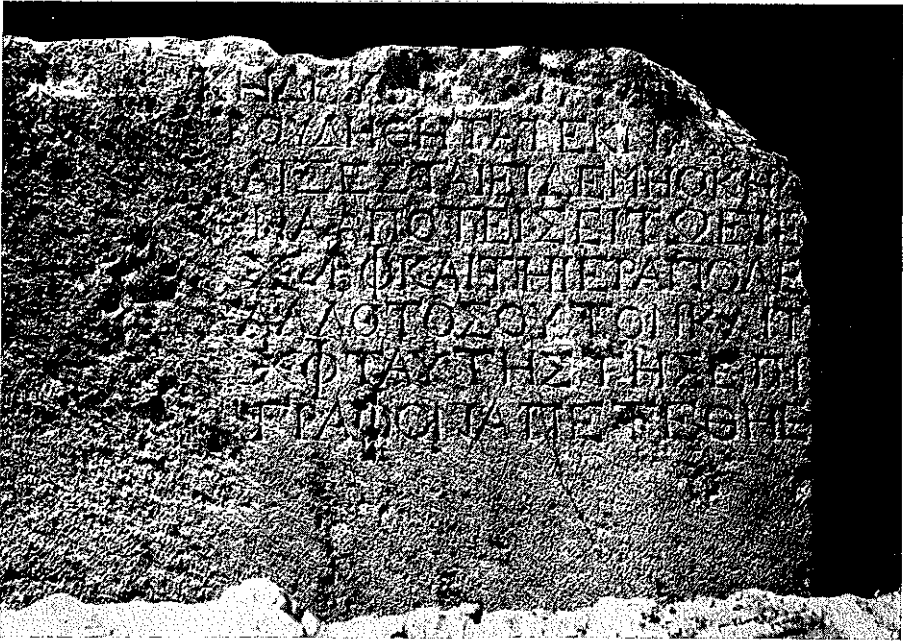 ΗΔΕΥ
ΟΥΛΗΘΗΤΑΙΕΚ
ΑΙΣΕΣΤΑΙΕΙΔΕΜΗΟΚΗΔ
ΑΠΟΤΕΙΣΕΙΤΩΙΕΡΩ
ΦΚΑΙΤΗΙΕΡΑΠΟΛΕ
ΑΛΛΟΤΟΣΟΥΤΟΝΚΑΙΤ
ΧΦΤΑΥΤΗΣΤΗΣΕΠΙ
ΓΡΑΦΟΝΑΠΕΤΕΘΗΕ